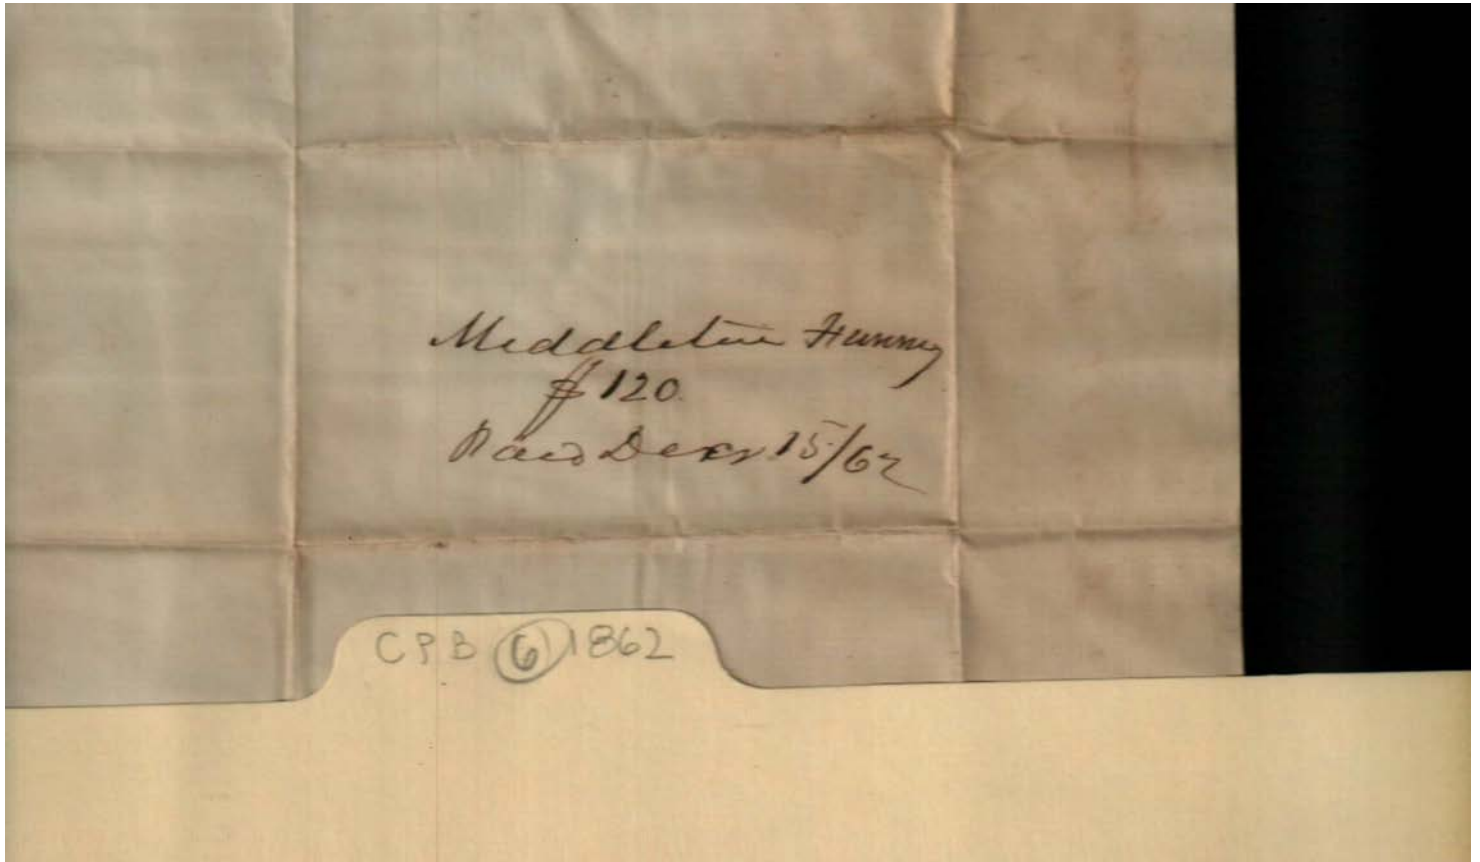 Middleton
120.
Paid Decr 15/62
CPB 6 1862